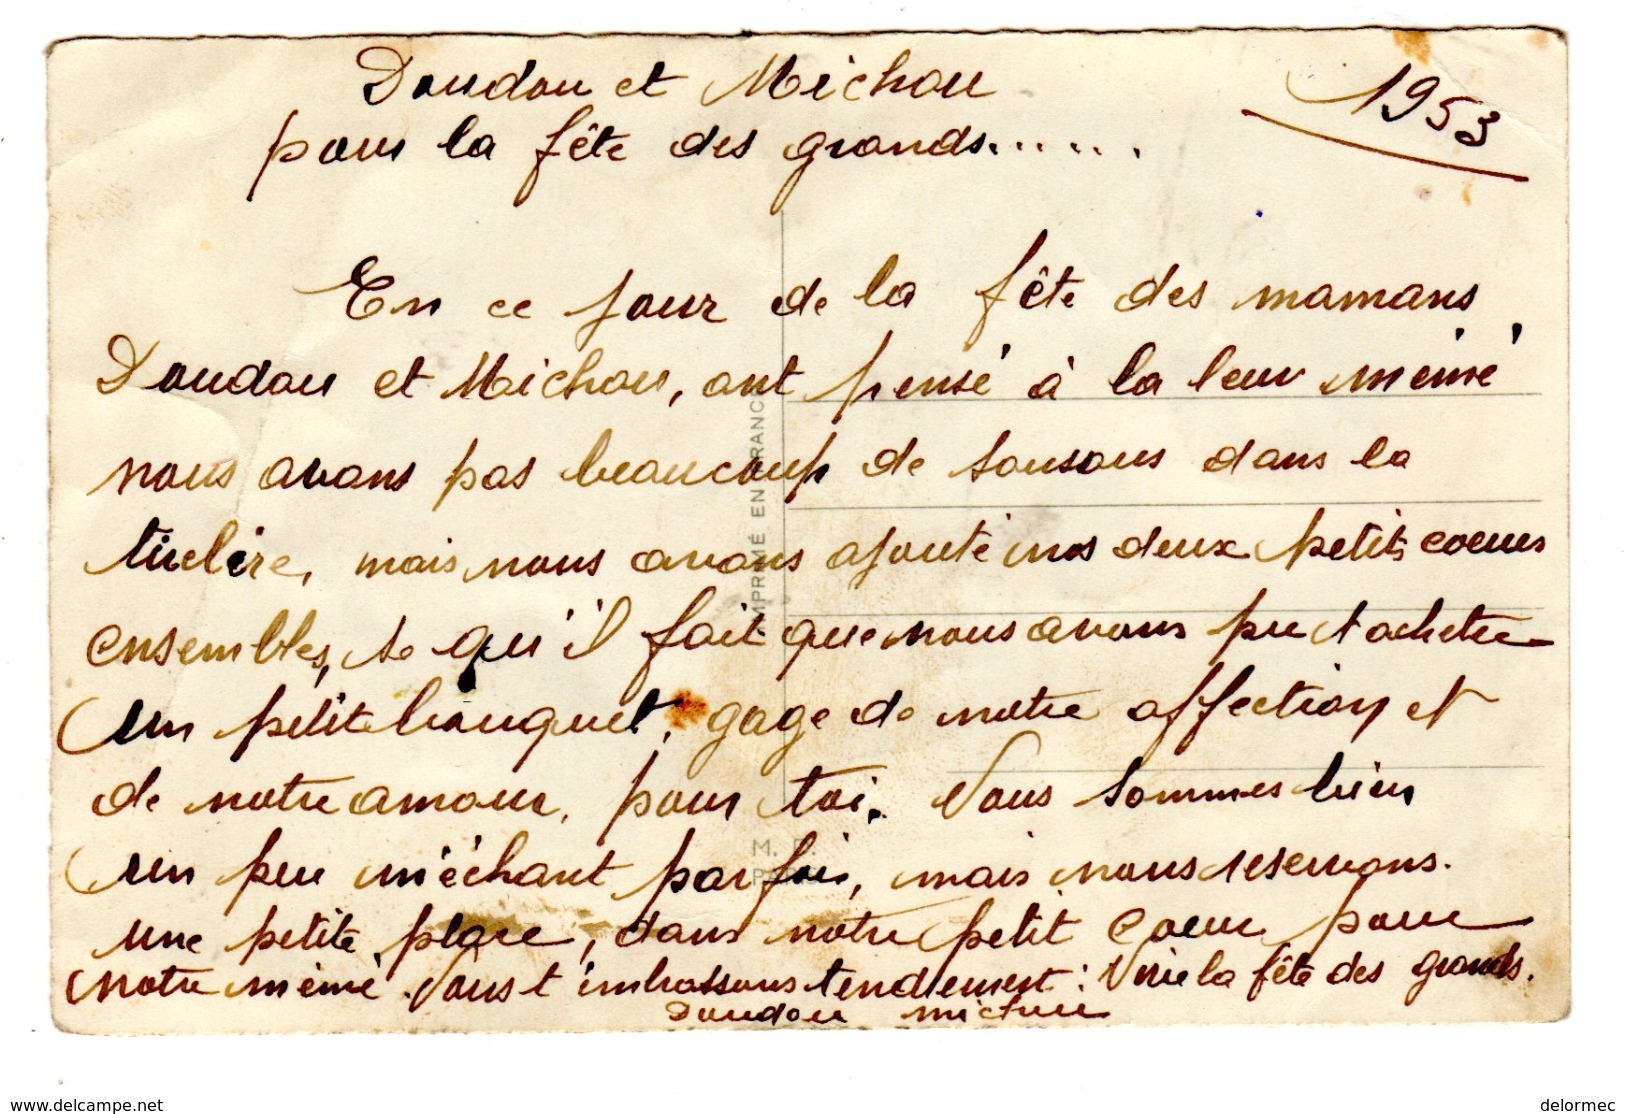 Doudou et Michou
1953
pour la fête des grands......
En ce jour de la fête des mamans
Doudou et Michou, ont pensé à la leur mémé
nous avons pas beaucoup de sousous dans la
tirelire, mais nous avons ajouté nos deux petits coeurs
ensembles, se qu'il fait que nous avons pu t'acheter
un petit bouquet, gage de notre affection et
de notre amour, pour toi. Nous sommes bien
un peu méchant parfois, mais nous reservons.
une petite place, dans notre petit coeur pour
notre mémé. Nous t'embrassons tendrement : Vive la fête des grands.
Doudou michou
IMPRIMÉ EN FRANCE
M. D.
PARIS
www.delcampe.net
delormec